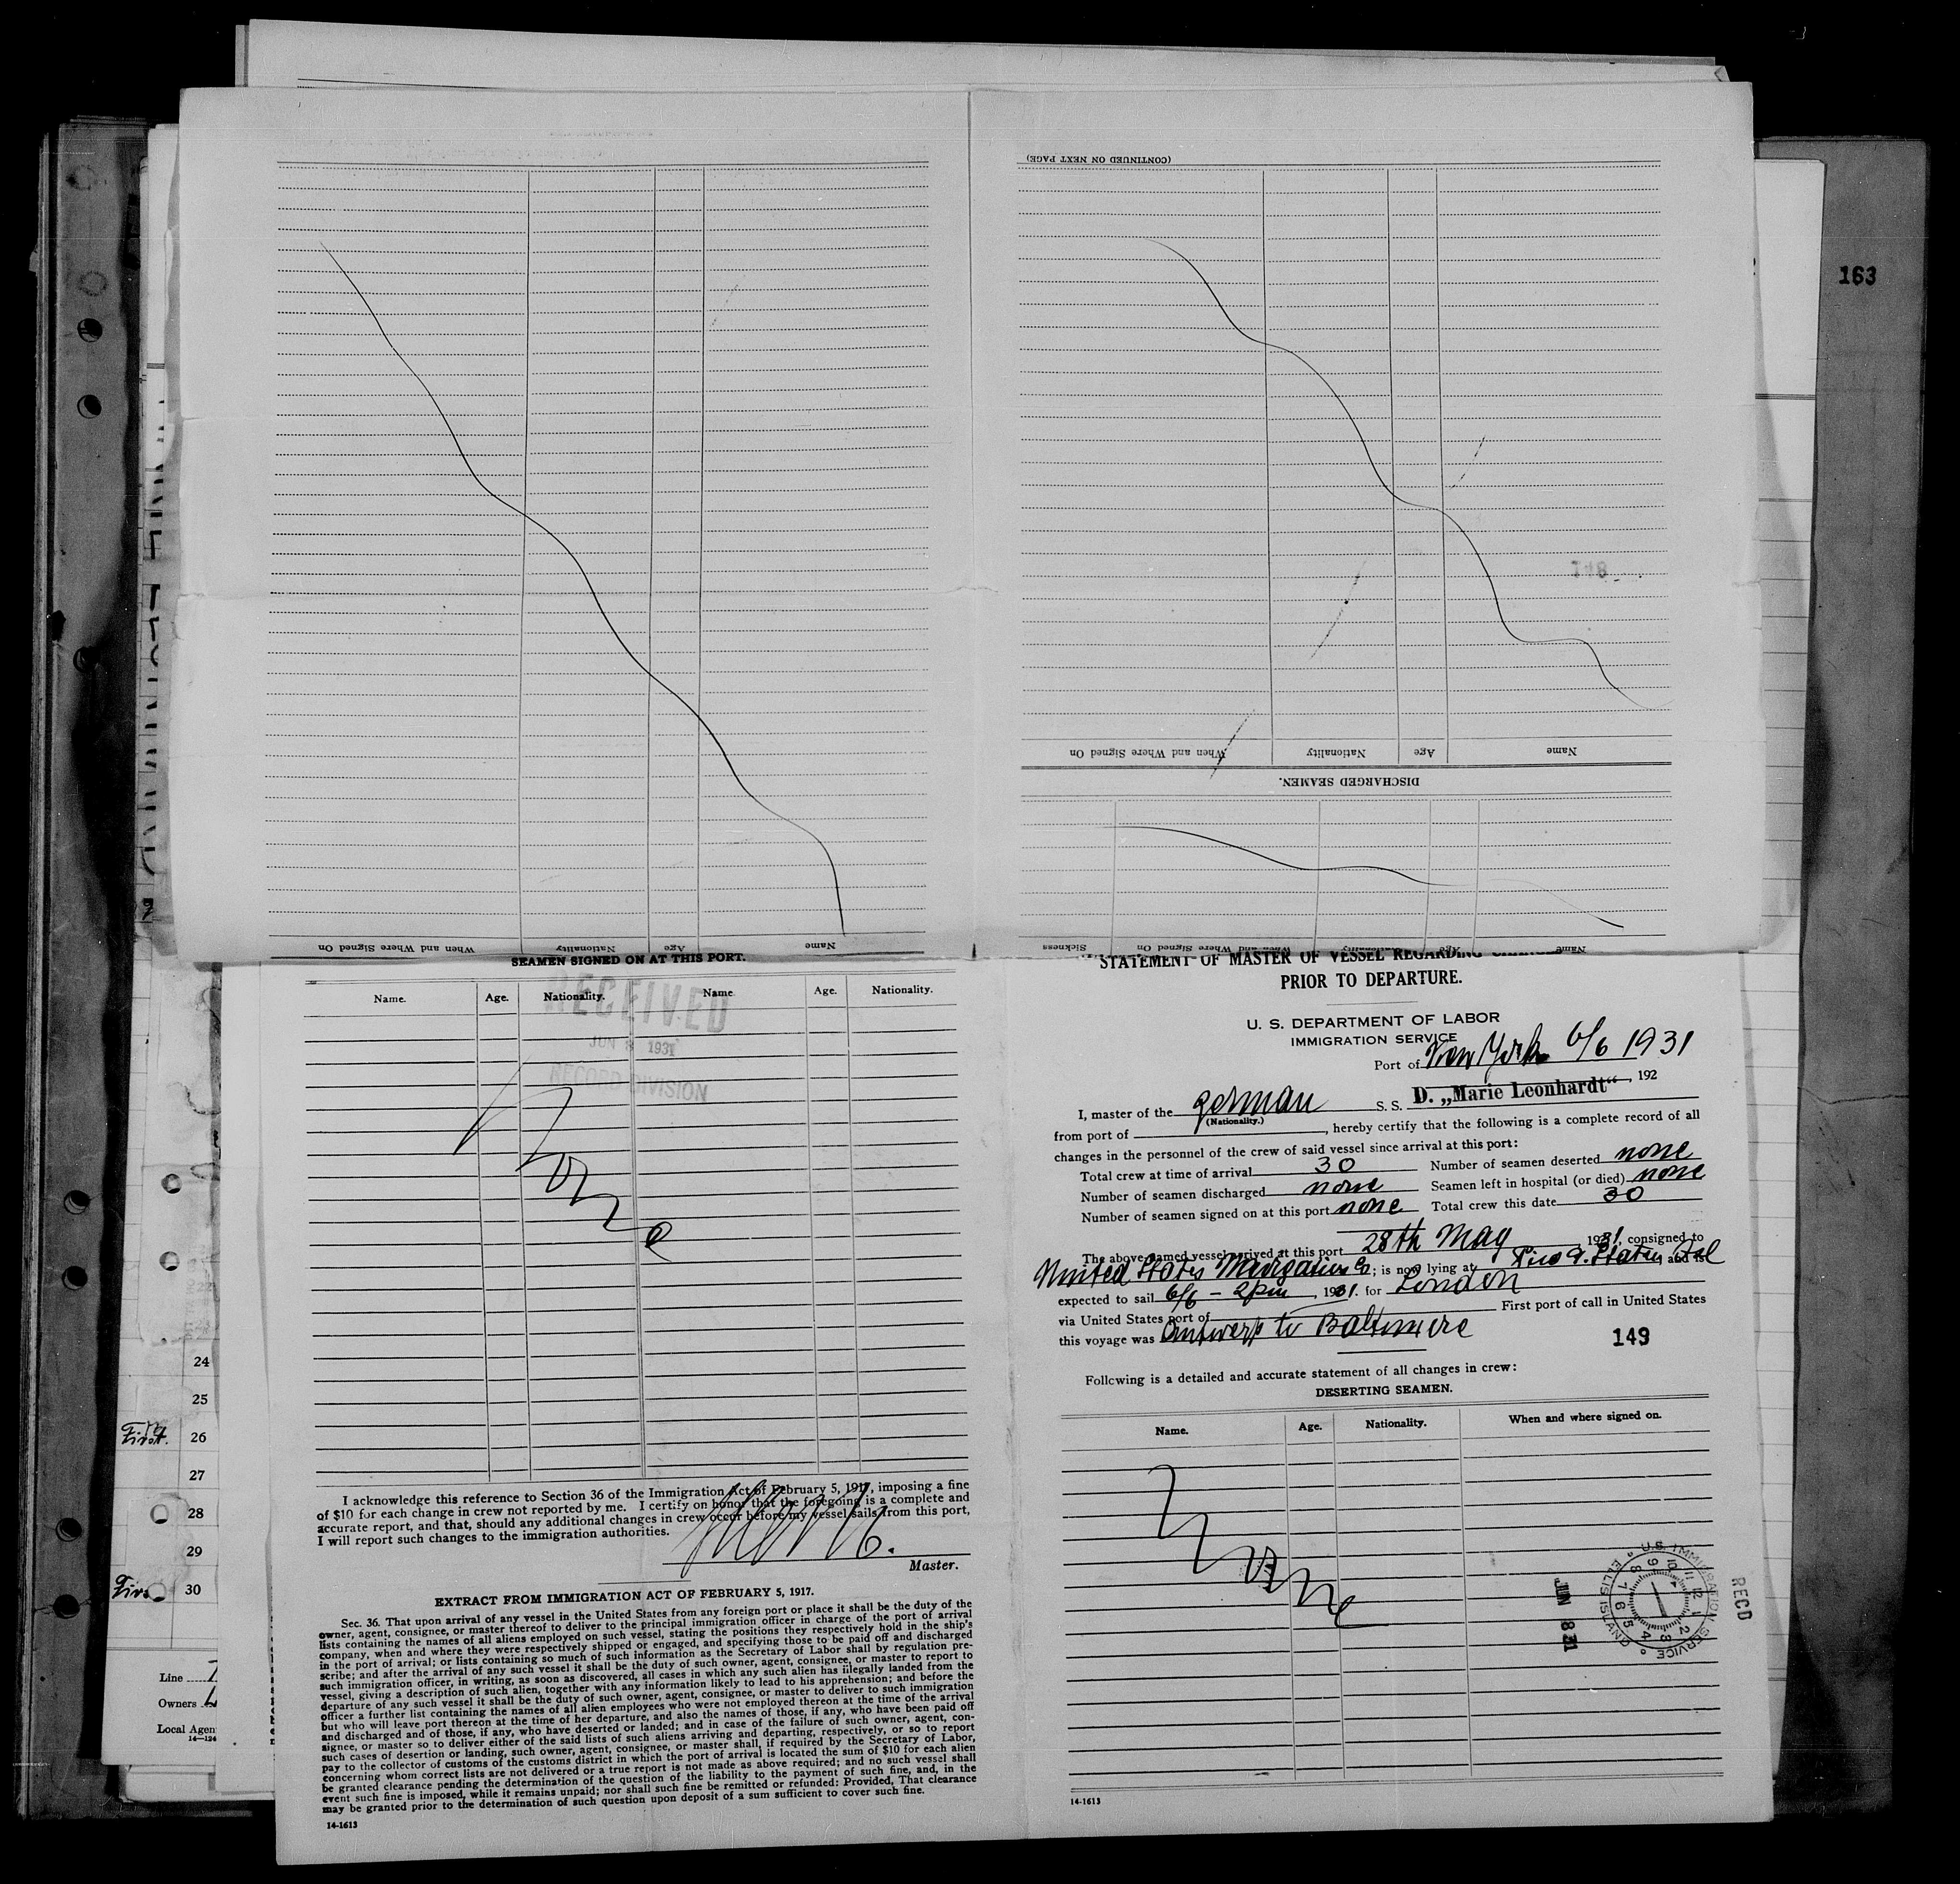 163
(CONTINUED ON NEXT PAGE)
When and Where Signed On Nationality Age Name
DISCHARGED SEAMEN.
When and Where Signed On Nationality Age Name
Sickness When and Where Signed On Nationality Age Name
SEAMEN SIGNED ON AT THIS PORT.
Name. Age. Nationality. Name Age. Nationality.
RECEIVED
JUN 1931
RECORD DIVISION
None
I acknowledge this reference to Section 36 of the Immigration Act of February 5, 1917, imposing a fine
of $10 for each change in crew not reported by me. I certify on honor that the foregoing is a complete and
accurate report, and that, should any additional changes in crew occur before my vessel sails from this port,
I will report such changes to the immigration authorities.
Master.
EXTRACT FROM IMMIGRATION ACT OF FEBRUARY 5, 1917.
Sec. 36. That upon arrival of any vessel in the United States from any foreign port or place it shall be the duty of the
owner, agent, consignee, or master thereof to deliver to the principal immigration officer in charge of the port of arrival
lists containing the names of all aliens employed on such vessel, stating the positions they respectively hold in the ship's
company, when and where they were respectively shipped or engaged, and specifying those to be paid off and discharged
in the port of arrival; or lists containing so much of such information as the Secretary of Labor shall by regulation pre-
scribe; and after the arrival of any such vessel it shall be the duty of such owner, agent, consignee, or master to report to
such immigration officer, in writing, as soon as discovered, all cases in which any such alien has illegally landed from the
vessel, giving a description of such alien, together with any information likely to lead to his apprehension; and before the
departure of any such vessel it shall be the duty of such owner, agent, consignee, or master to deliver to such immigration
officer a further list containing the names of all alien employees who were not employed thereon at the time of the arrival
but who will leave port thereon at the time of her departure, and also the names of those, if any, who have been paid off
and discharged and of those, if any, who have deserted or landed; and in case of the failure of such owner, agent, con-
signee, or master so to deliver either of the said lists of such aliens arriving and departing, respectively, or so to report
such cases of desertion or landing, such owner, agent, consignee, or master shall, if required by the Secretary of Labor,
pay to the collector of customs of the customs district in which the port of arrival is located the sum of $10 for each alien
concerning whom correct lists are not delivered or a true report is not made as above required; and no such vessel shall
be granted clearance pending the determination of the question of the liability to the payment of such fine, and, in the
event such fine is imposed, while it remains unpaid; nor shall such fine be remitted or refunded: Provided, That clearance
may be granted prior to the determination of such question upon deposit of a sum sufficient to cover such fine.
14-1613
STATEMENT OF MASTER OF VESSEL REGARDING
PRIOR TO DEPARTURE.
U. S. DEPARTMENT OF LABOR
IMMIGRATION SERVICE
Port of New York 6/6 1931
, 192
I, master of the german S. S. D. „Marie Leonhardt“
(Nationality.)
from port of , hereby certify that the following is a complete record of all
changes in the personnel of the crew of said vessel since arrival at this port:
Total crew at time of arrival 30 Number of seamen deserted none
Number of seamen discharged none Seamen left in hospital (or died) none
Number of seamen signed on at this port none Total crew this date 30
The above-named vessel arrived at this port 28th May 1931, consigned to
United States Navigation Co; is now lying at Pier 9. Staten Isl and is
expected to sail 6/6 - 2 pm, 1931. for London
via United States port of First port of call in United States
this voyage was Antwerp to Baltimore
149
Following is a detailed and accurate statement of all changes in crew:
DESERTING SEAMEN.
Name. Age. Nationality. When and where signed on.
None
U.S. IMMIGRATION SERVICE
ELLIS ISLAND
JUN 8 31
RECD
14-1613
24
25
26
27
28
29
30
Line
Owners
Local Agen
14-124